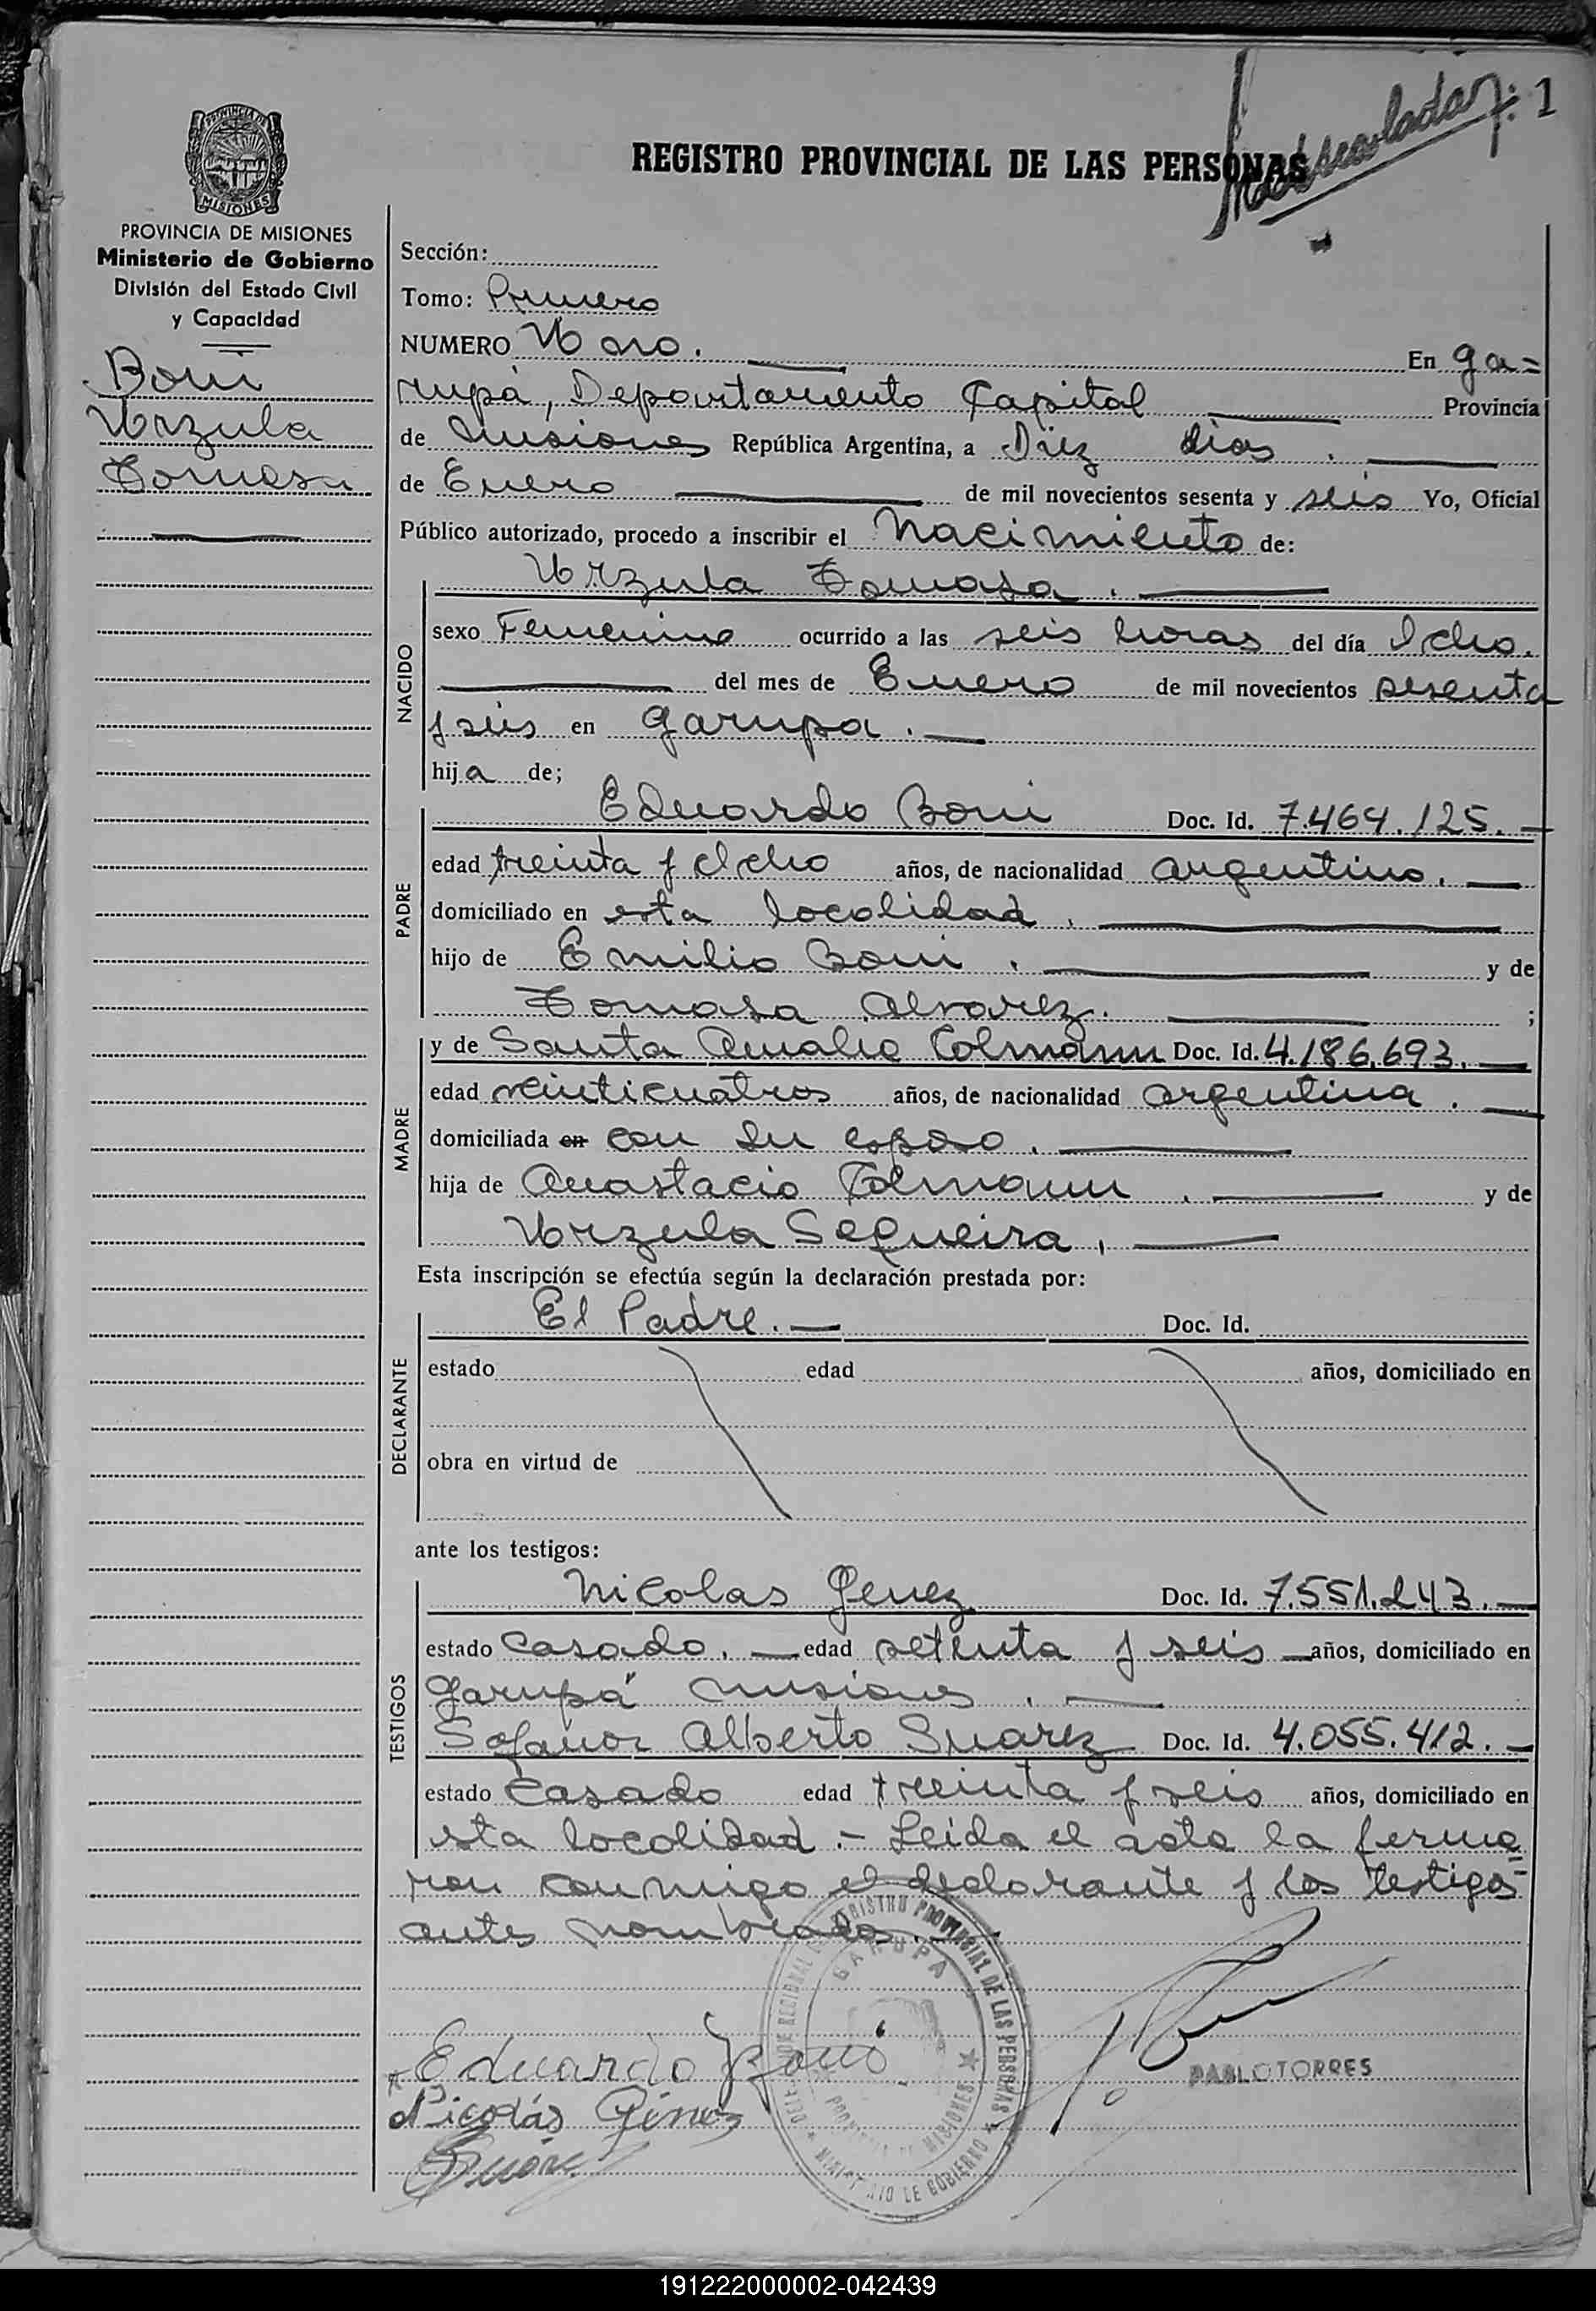 1
REGISTRO PROVINCIAL DE LAS PERSONAS
PROVINCIA DE MISIONES
Ministerio de Gobierno
División del Estado Civil
y Capacidad
Boni
Urzula
Tomasa
Sección:
Tomo: Primero
NUMERO Uno. En Ga=
rupá, Departamento Capital Provincia
de Misiones República Argentina, a Diez dias.
de Enero de mil novecientos sesenta y seis Yo, Oficial
Público autorizado, procedo a inscribir el Nacimiento de:
Urzula Tomasa.
NACIDO
sexo Femenino ocurrido a las seis horas del día Ocho.
del mes de Enero de mil novecientos sesenta
y seis en Garupa.
hija de;
PADRE
Eduardo Boni Doc. Id. 7.464.125.
edad treinta y Ocho años, de nacionalidad argentino.
domiciliado en esta localidad.
hijo de Emilio Boni. y de
Tomasa Alvarez. ;
MADRE
y de Santa Amalia Colmann Doc. Id. 4.186.693.
edad veinticuatros años, de nacionalidad argentina.
domiciliada en con su esposo.
hija de Anastacio Colmann. y de
Urzula Sequeira.
Esta inscripción se efectúa según la declaración prestada por:
DECLARANTE
El Padre. Doc. Id.
estado edad años, domiciliado en
obra en virtud de
ante los testigos:
TESTIGOS
Nicolas Genez Doc. Id. 7.551.243.
estado Casado. edad setenta y seis años, domiciliado en
Garupá Misiones.
Sofanor Alberto Suarez Doc. Id. 4.055.412.
estado Casado edad treinta y seis años, domiciliado en
esta localidad.- Leida el acta la firma=
ron conmigo el declarante y los testigos
antes nombrados.
REGISTRO PROVINCIAL DE LAS PERSONAS
GARUPA
PROVINCIA DE MISIONES
MINISTERIO DE GOBIERNO
Eduardo Boni
PABLO TORRES
Nicolás Génez
Suárez
191222000002-042439